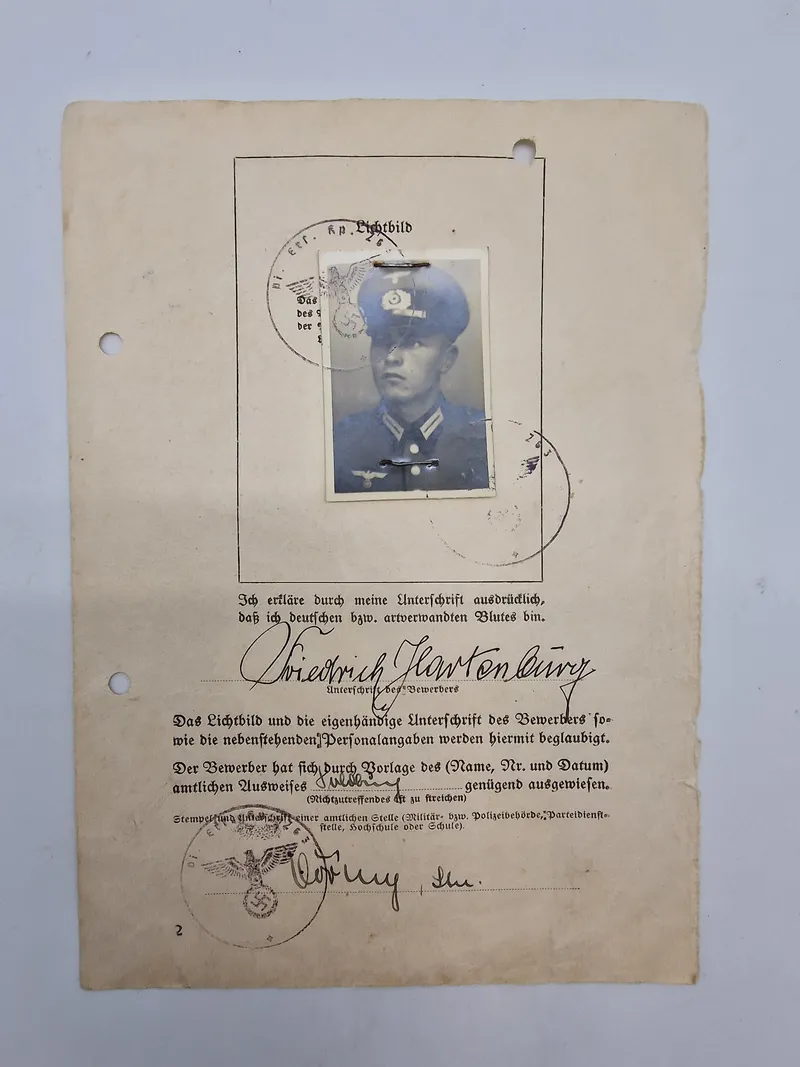 Di. Ers. Kp. 26
Lichtbild
Das
des
der
263
Ich erkläre durch meine Unterschrift ausdrücklich,
daß ich deutschen bzw. artverwandten Blutes bin.
Friedrich Hartenburg
Unterschrift des Bewerbers
Das Lichtbild und die eigenhändige Unterschrift des Bewerbers so=
wie die nebenstehenden Personalangaben werden hiermit beglaubigt.
Der Bewerber hat sich durch Vorlage des (Name, Nr. und Datum)
amtlichen Ausweises Soldbuch genügend ausgewiesen.
(Nichtzutreffendes ist zu streichen)
Stempel und Unterschrift einer amtlichen Stelle (Militär- bzw. Polizeibehörde, Parteidienst=
stelle, Hochschule oder Schule).
2